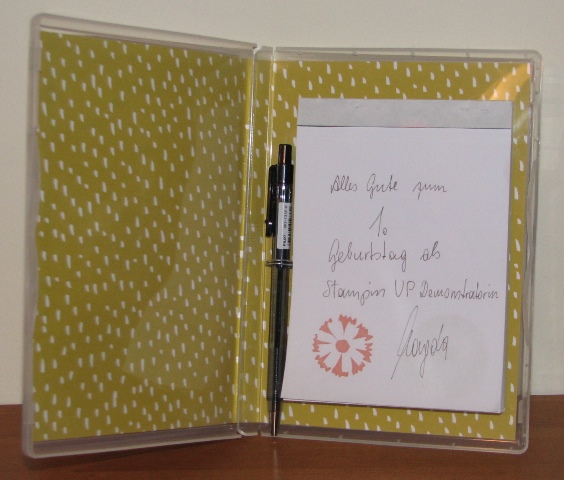 Alles Gute zum
1.
Geburtstag als
Stampin UP Demonstratorin